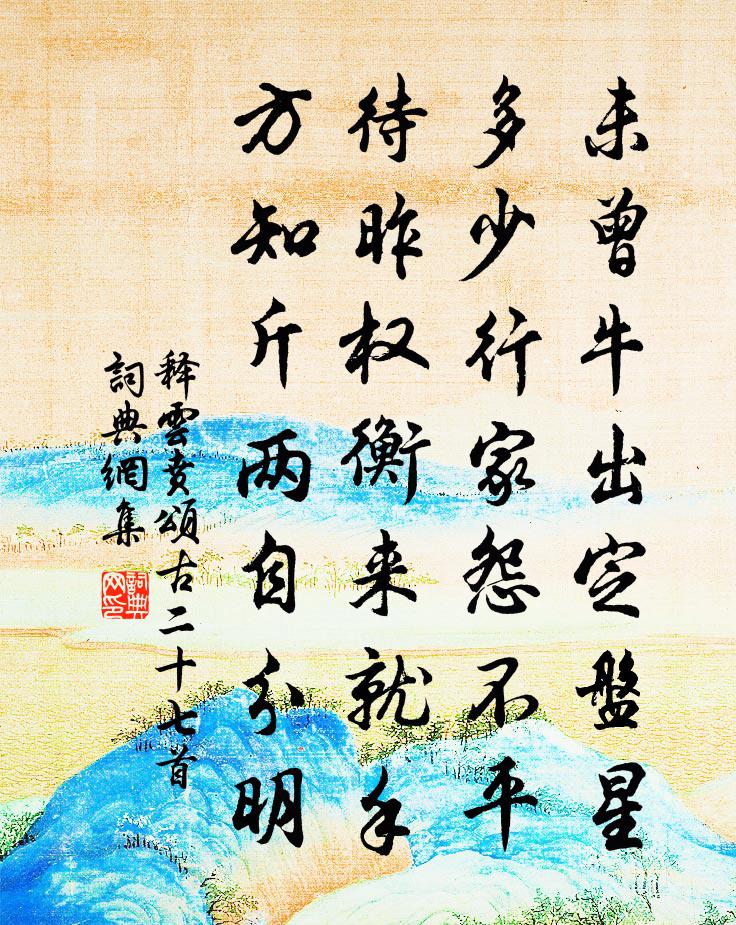 未曾牛出定盤星
多少行家怨不平
待昨权衡来就手
方知斤两自分明
释雲贲頌古二十七首
詞典網集
詞典網印